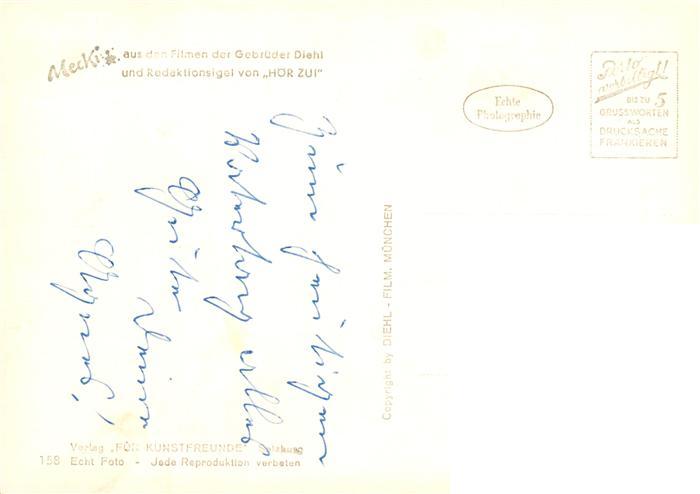 Mecki
aus den Filmen der Gebrüder Diehl
und Redaktionsigel von „HÖR ZU!"
Echte
Photographie
Porto
verbilligt!
BIS ZU 5
GRUSSWORTEN
ALS
DRUCKSACHE
FRANKIEREN
Zum heutigen
alles
Gute
Deine
Copyright by DIEHL - FILM, MÜNCHEN
Verlag „FÜR KUNSTFREUNDE" Salzburg
158 Echt Foto - Jede Reproduktion verboten